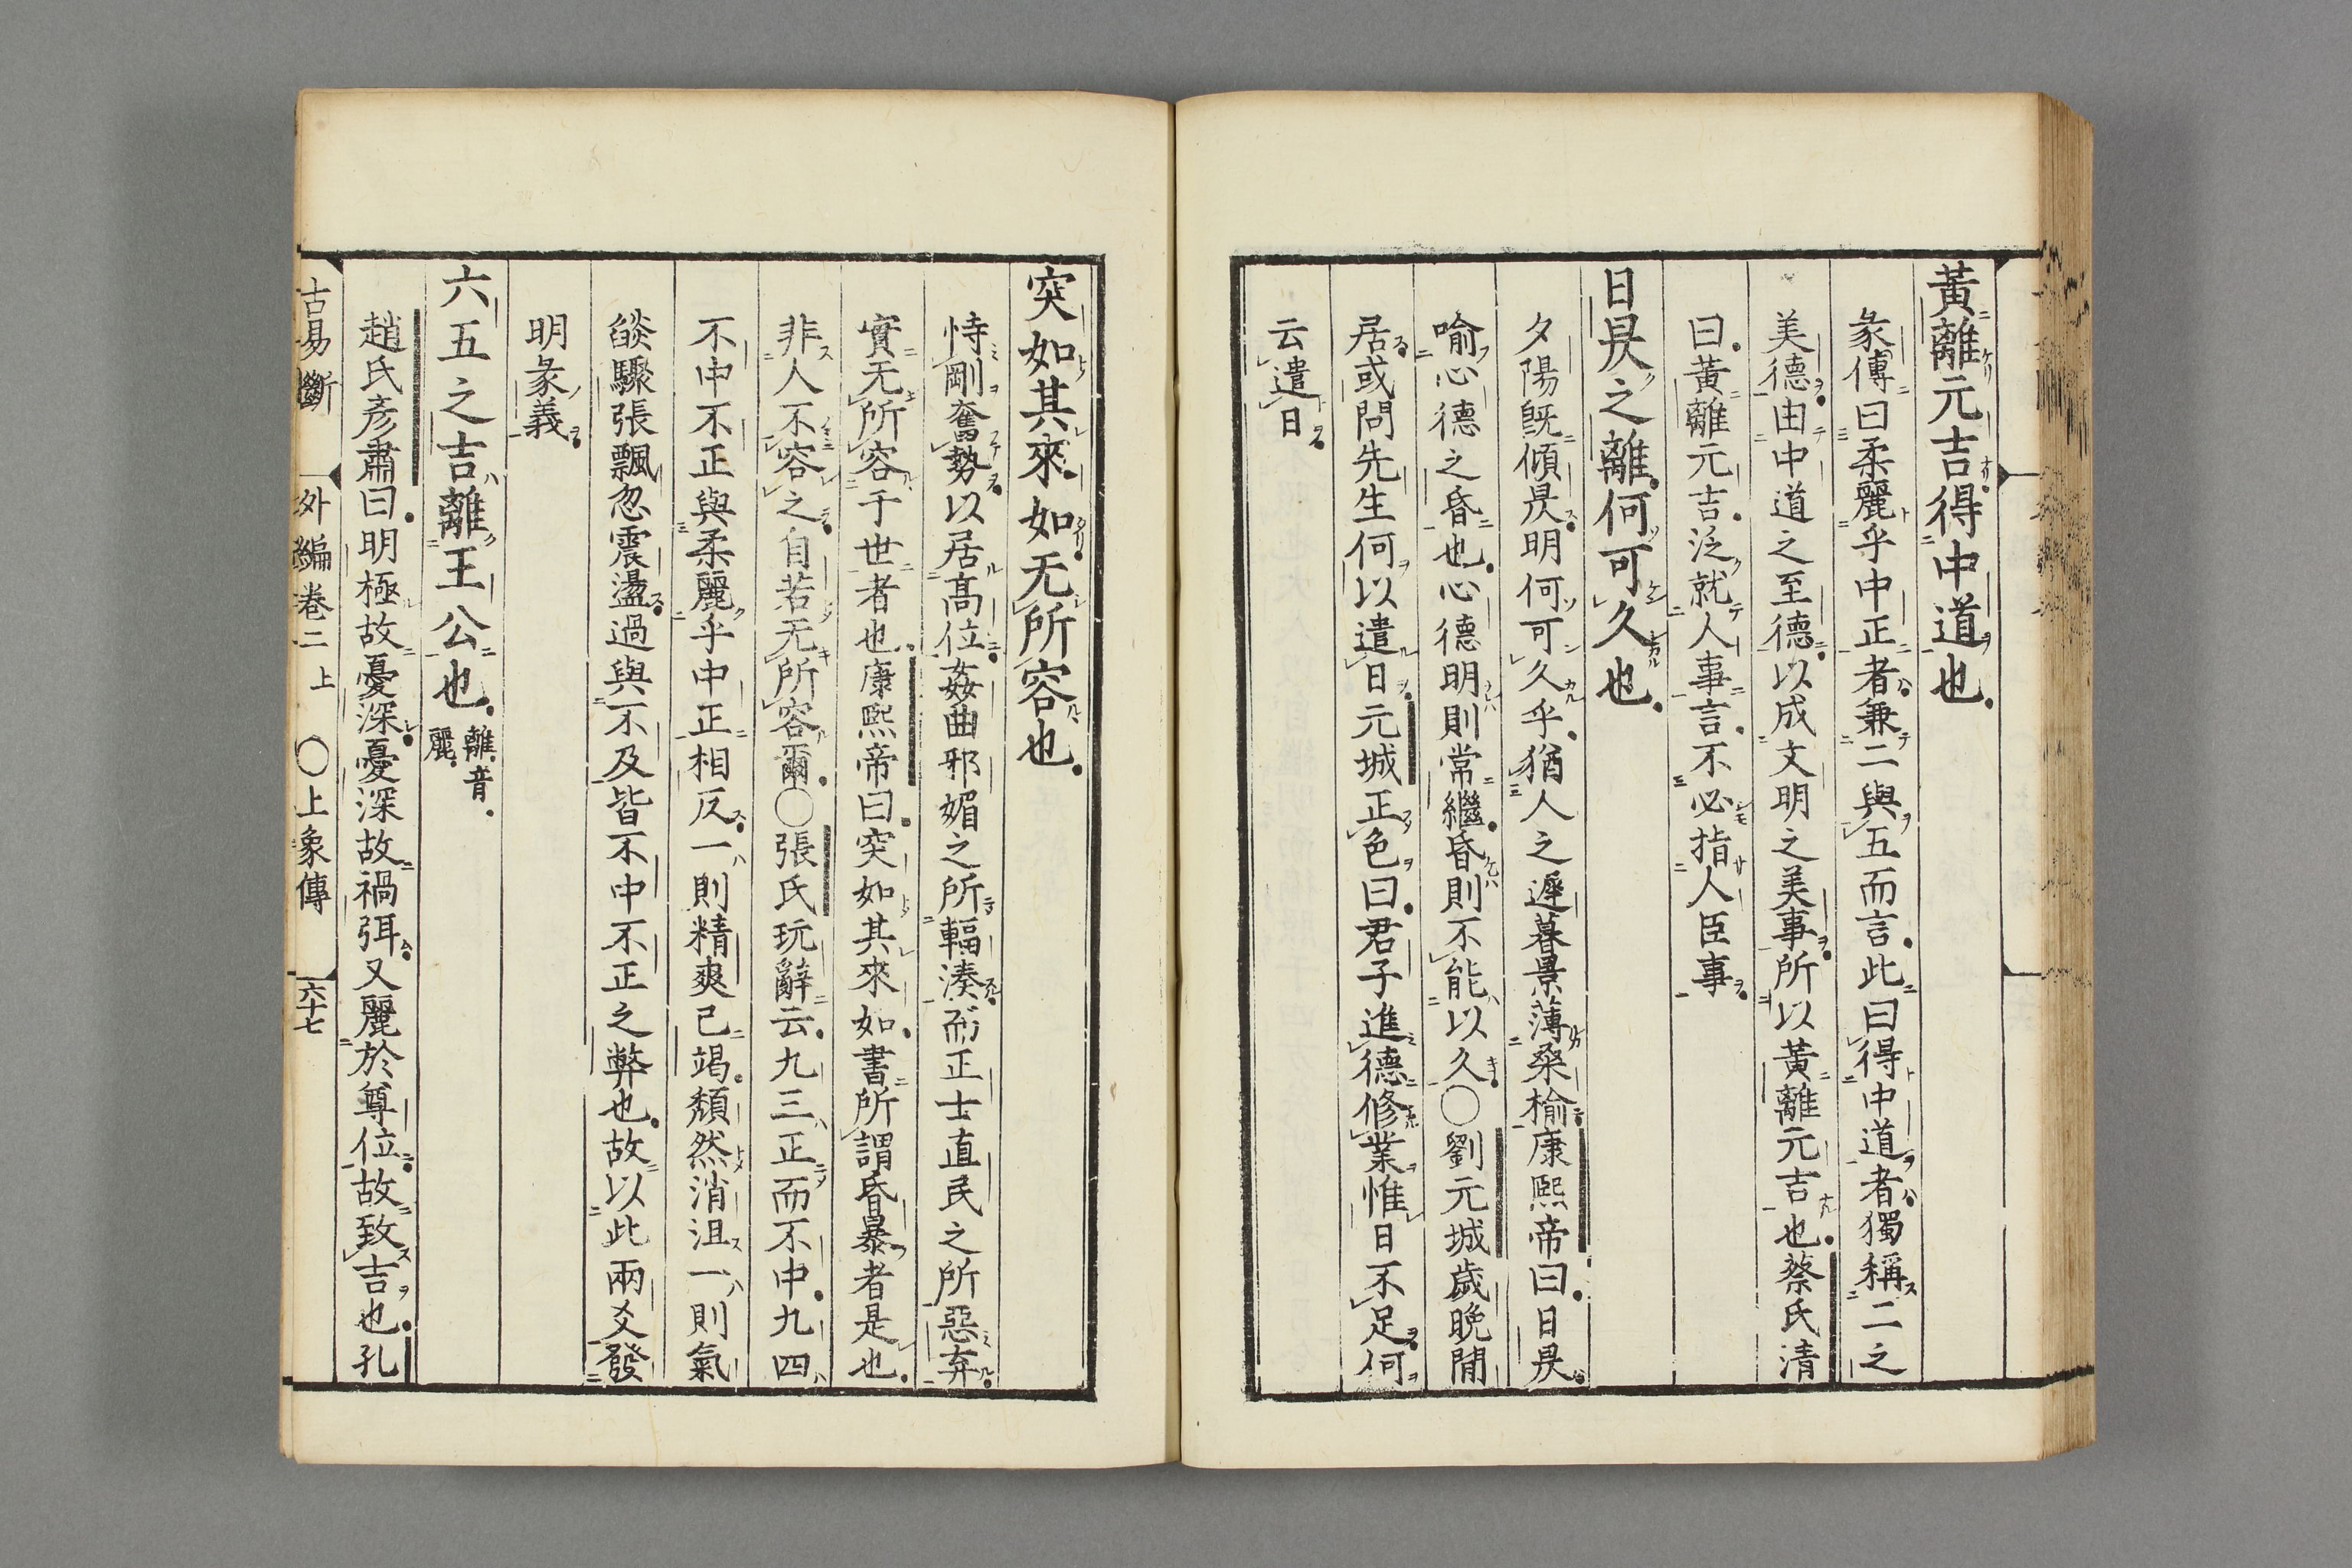 黃離元吉得中道也
彖傳曰柔麗乎中正者兼二與五而言此曰得中道者獨稱二之
美德由中道之至德以成文明之美事所以黃離元吉也蔡氏清
曰黃離元吉泛就人事言不必指人臣事
日昃之離何可久也
夕陽旣傾昃明何可久乎猶人之遲暮景薄桑榆康熙帝曰日昃
喻心德之昏也心德明則常繼昏則不能以久○劉元城歲晚閒
居或問先生何以遣日元城正色曰君子進德修業惟日不足何
云遣日
突如其來如无所容也
恃剛奮勢以居高位姦曲邪媚之所輻湊而正士直民之所惡弃
實无所容于世者也康熙帝曰突如其來如書所謂昏暴者是也
非人不容之自若无所容爾○張氏玩辭云九三正而不中九四
不中不正與柔麗乎中正相反一則精爽已竭頽然消沮一則氣
燄驟張飄忽震盪過與不及皆不中不正之弊也故以此兩爻發
明彖義
六五之吉離王公也離音麗
趙氏彥肅曰明極故憂深憂深故禍弭又麗於尊位故致吉也孔
古易斷 外編卷二上 ○上象傳 六十七